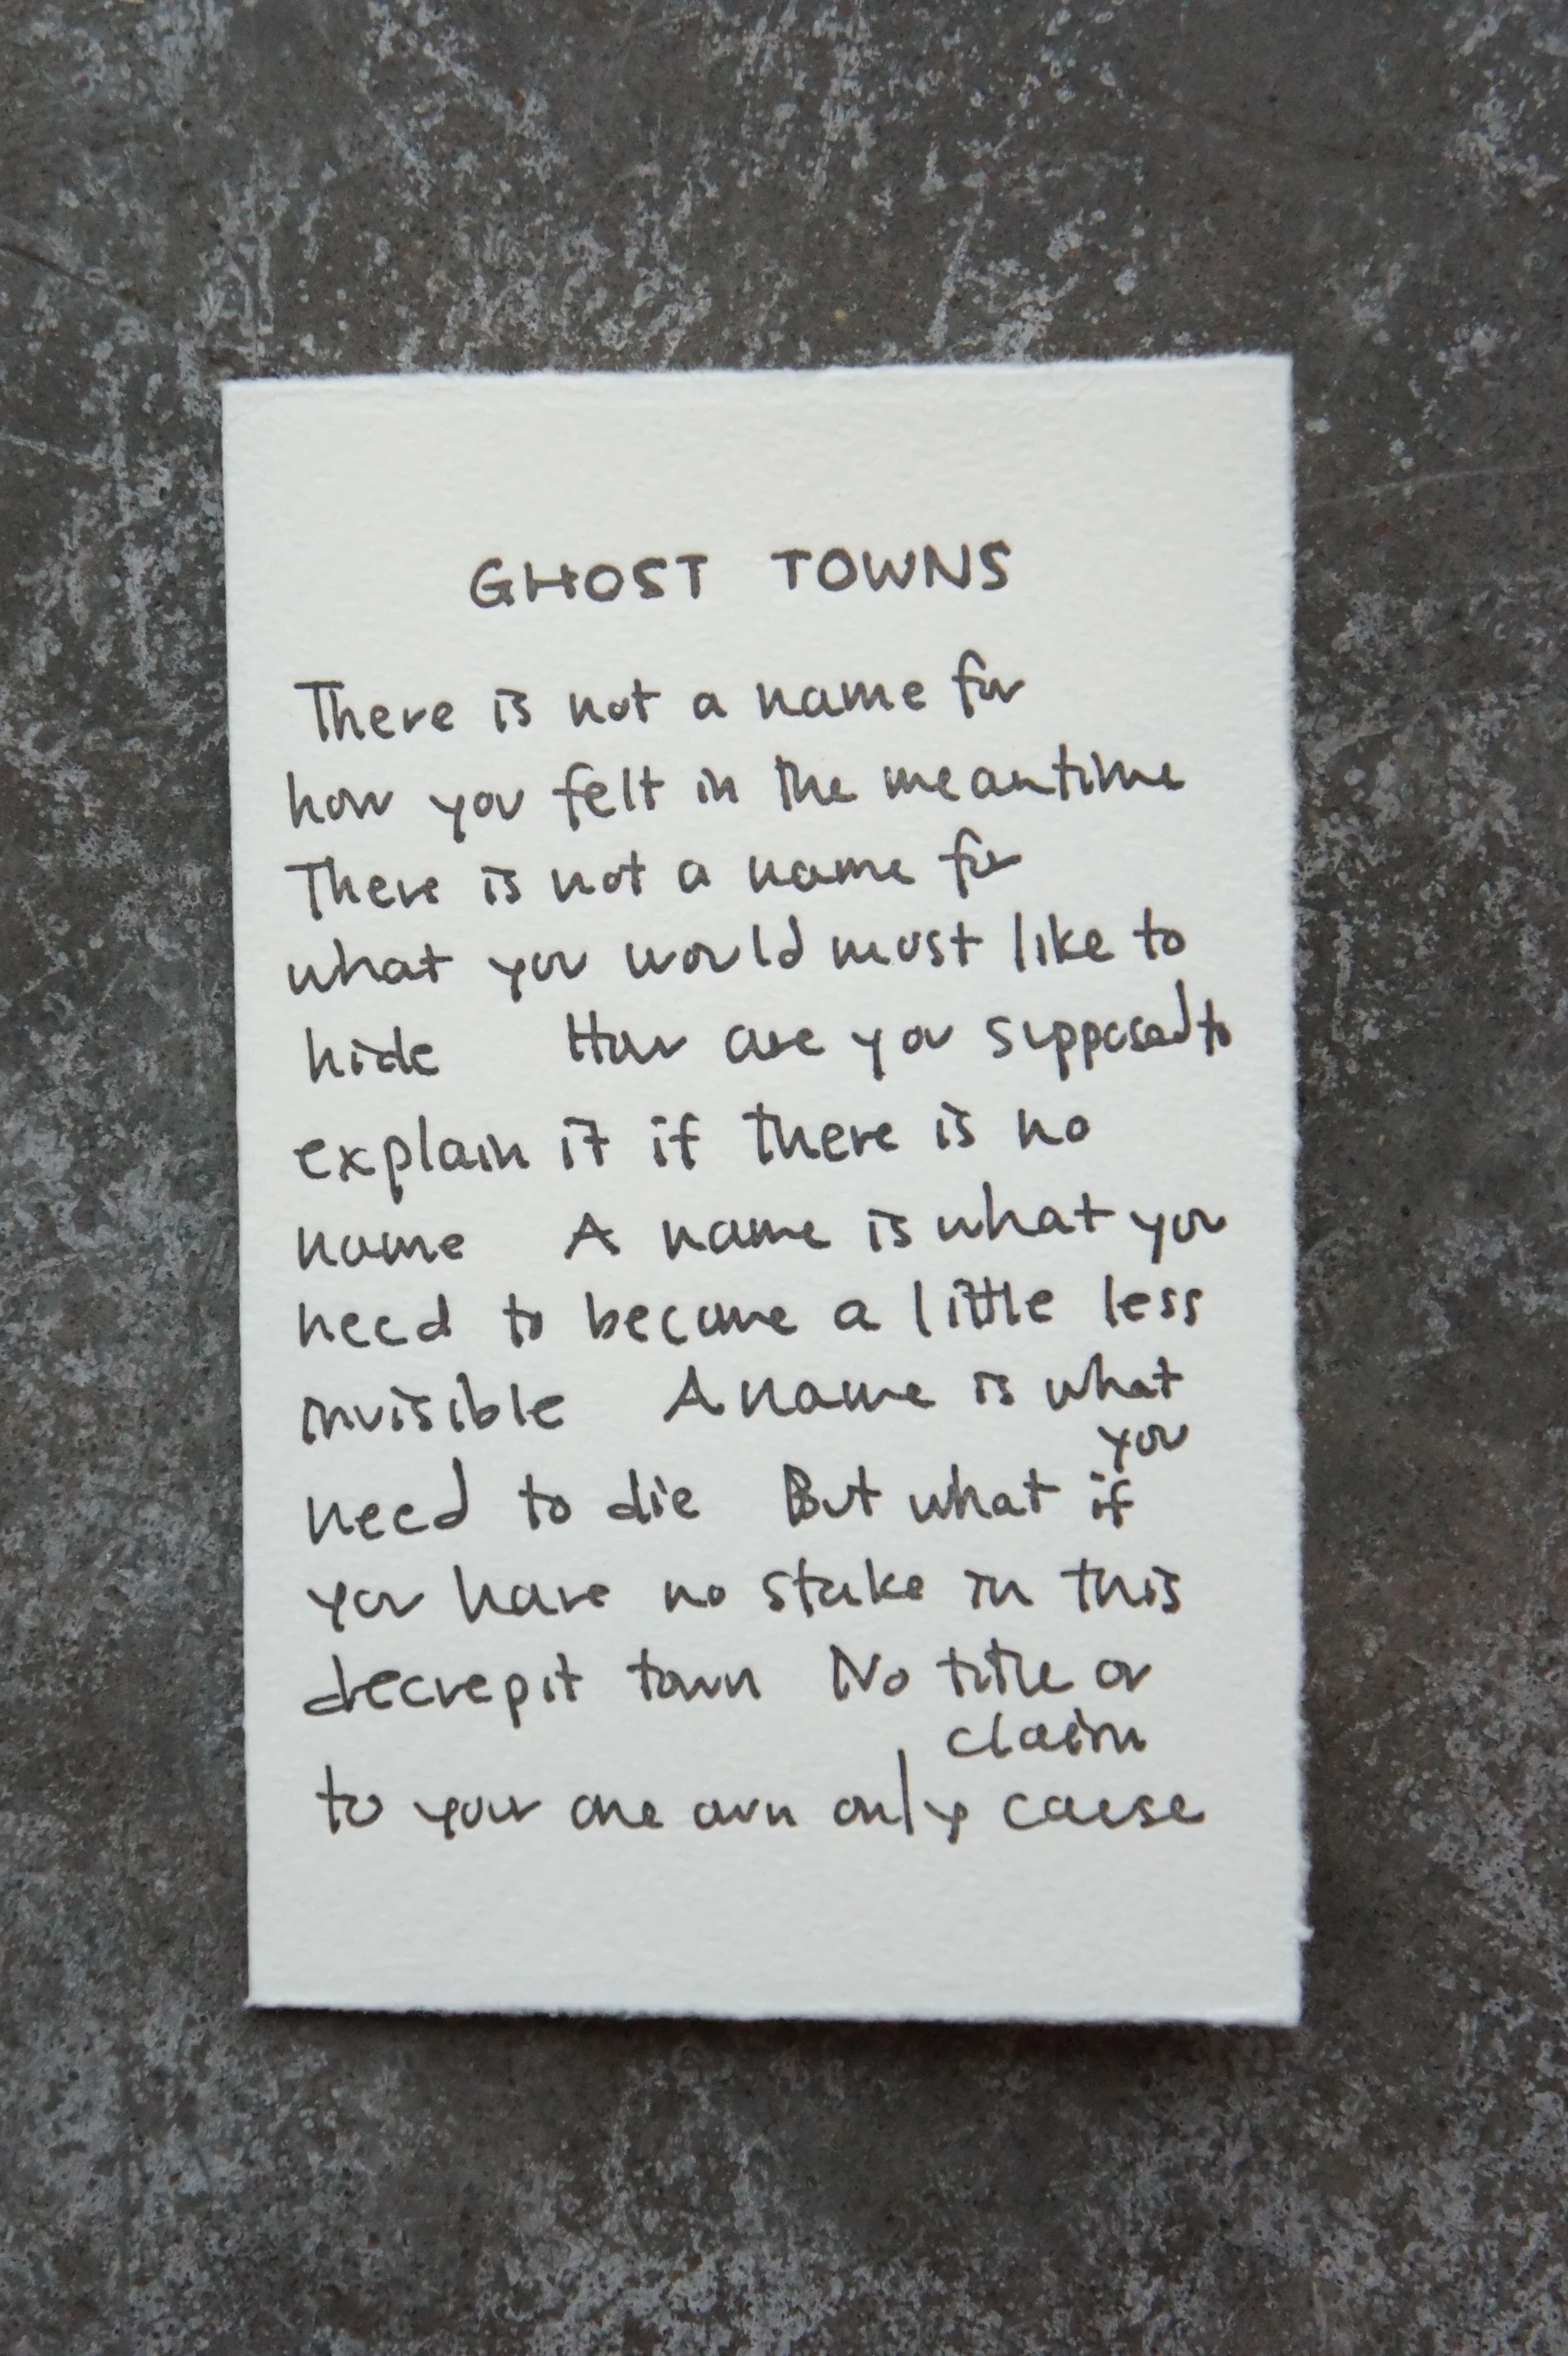 GHOST TOWNS
There is not a name for
how you felt in the meantime
There is not a name for
what you would most like to
hide How are you supposed to
explain it if there is no
name A name is what you
need to become a little less
invisible A name is what
you
need to die But what if
you have no stake in this
decrepit town No title or
claim
to your one own only cause